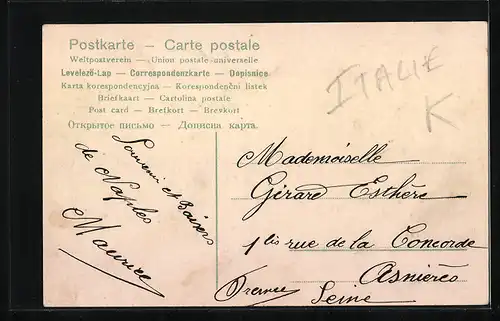 Postkarte — Carte postale
Weltpostverein — Union postale universelle
Levelező-Lap — Correspondenzkarte — Dopisnice
Karta korespondencyjna — Korespondenční lístek
Briefkaart — Cartolina postale
Post card — Brefkort — Brevkort
Открытое письмо — Дописна карта.
ITALIE
K
Souvenir et Baisers
de Naples
Maurice
Mademoiselle
Gérard Esthère
1 bis rue de la Concorde
Asnières
Seine
France